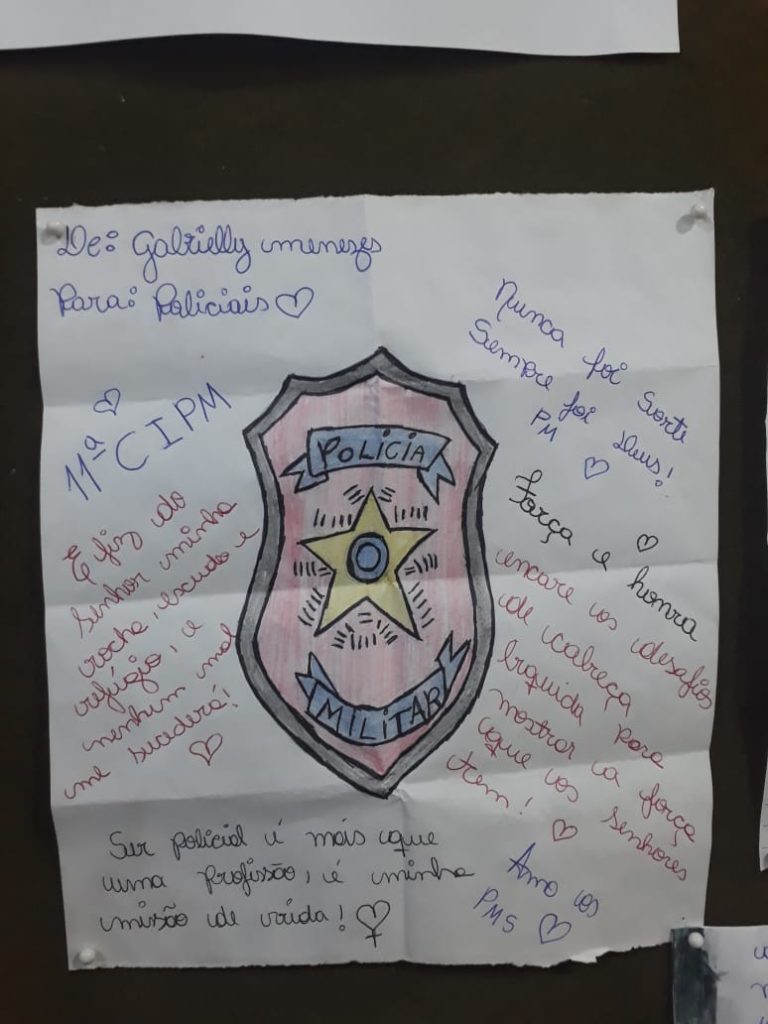 De: Gabrielly meneses
Para: Policiais
Nunca foi Sorte
Sempre foi Deus!
PM
11ª CIPM
POLICIA
MILITAR
E fiz do
Senhor minha
rocha, escudo e
refúgio, e
nenhum mal
me sucederá!
Força e honra
encare os desafios
de cabeça
Erguida para
mostrar a força
que os senhores
tem!
Ser policial é mais que
uma profissão, é minha
misão de vida!
Amo os
PMS